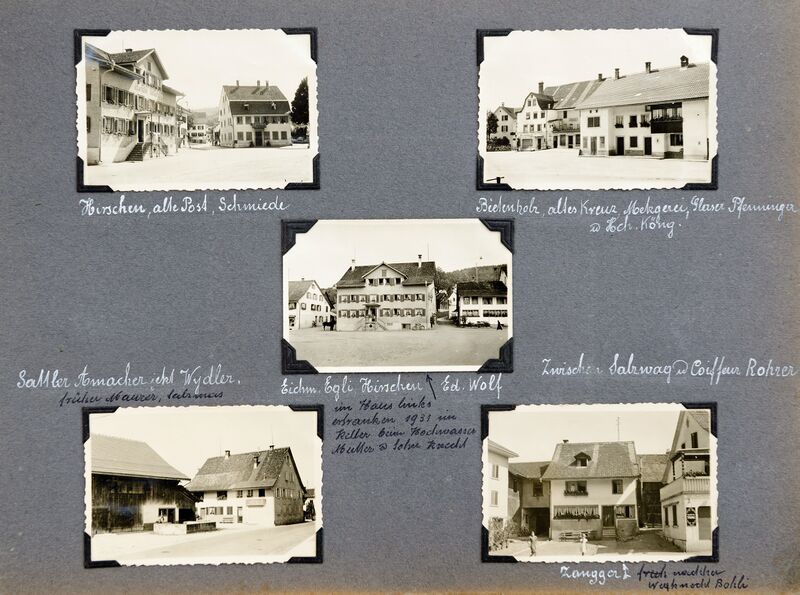 Hirschen, alte Post, Schmiede
Bietenholz, altes Kreuz, Metzgerei, Glaser Pfenninger
u Hch. Köng.
Sattler Amacher jetzt Wydler.
früher Maurer,
Eichm. Egli. Hirschen Ed. Wolf
im Haus links
ertranken 1931 im
Keller beim Hochwasser
Mutter u Sohn Knecht
Zwischen Salzwag u Coiffeur Rohrer
Zangger
Wegknecht Bohli